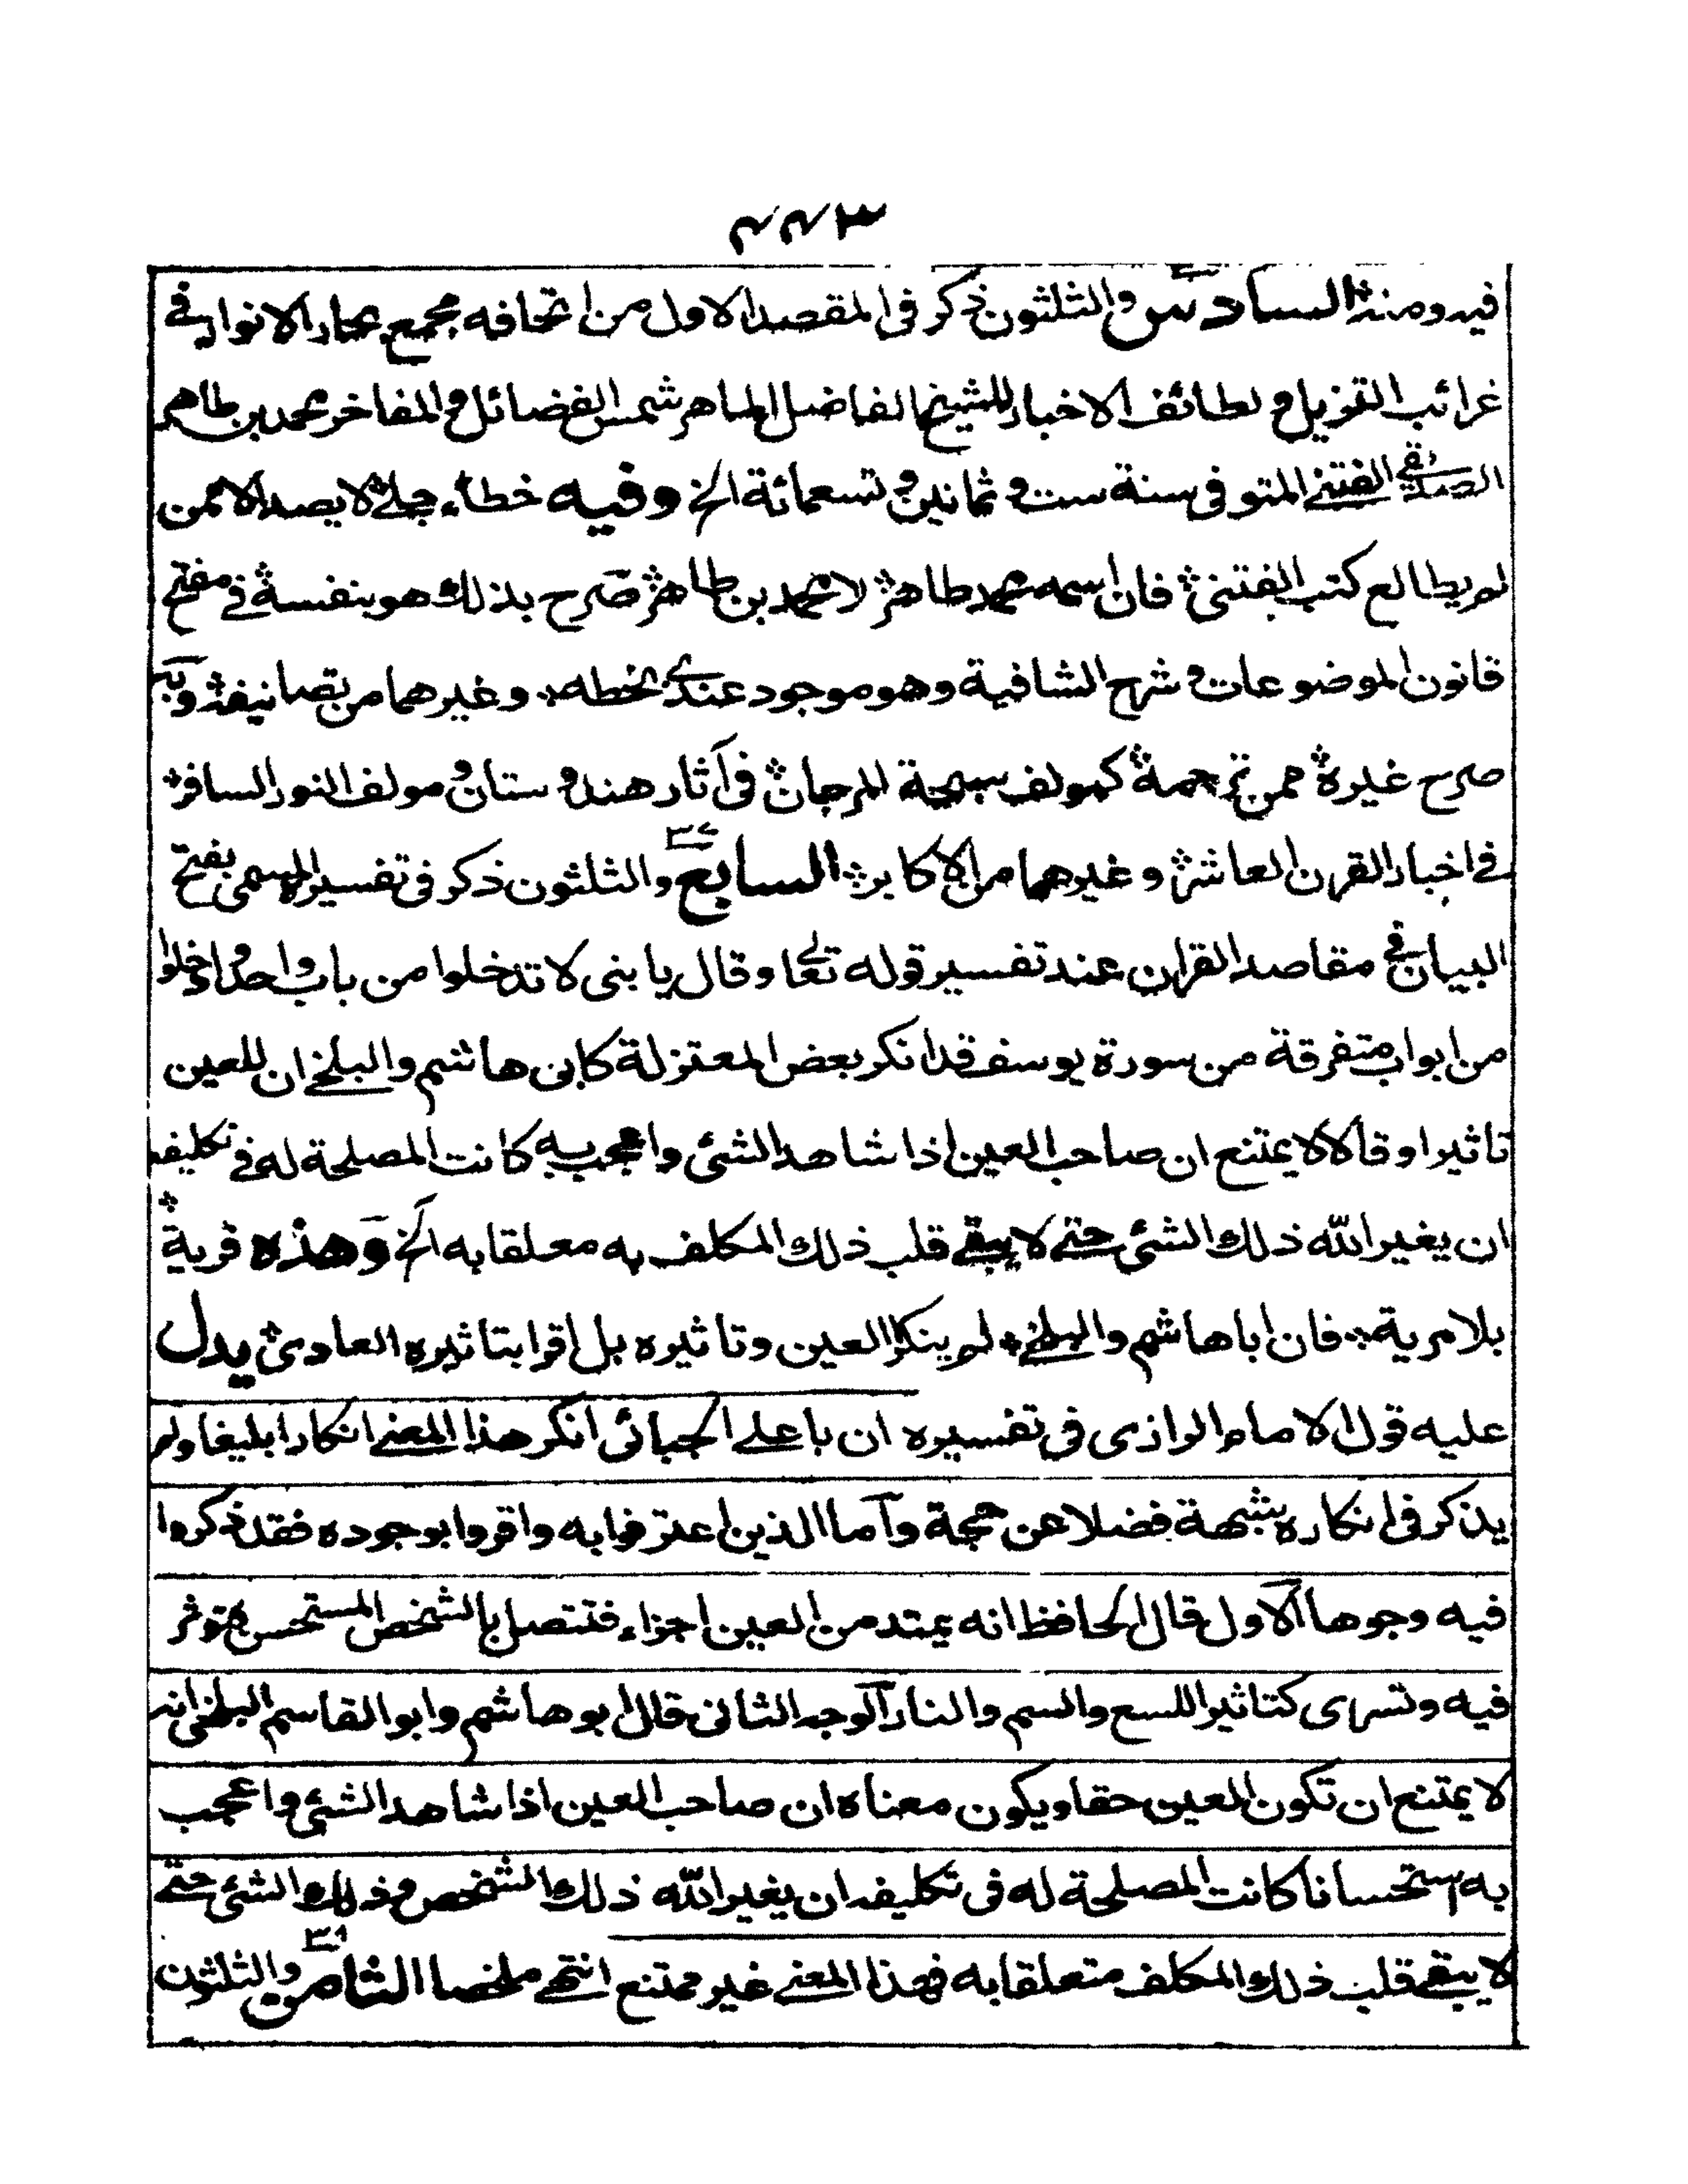 ٣٤٤
فيه ومنه السادس والثلثون ذكر فى المقصد الاول من اتحافه مجمع بحار الانوار فى
غرائب التنزيل و لطائف الاخبار للشيخ الفاضل الماهر شمس الفضائل والمفاخر محمد بن طاهر
الصديقى الفتنى المتوفى سنة ست و ثمانين و تسعمائة الخ وفيه خطاء جلى لا يصدر الا ممن
لم يطالع كتب الفتنى فان اسمه محمد طاهر لا محمد بن طاهر صرح بذلك هو بنفسه فى مفتح
قانون الموضوعات و شرح الشافية وهو موجود عندى بخطه وغيرهما من تصانيفه وبه
صرح غيره ممن ترجمه كمولف سبحة المرجان فى آثار هندوستان و مولف النور السافر
فى اخبار القرن العاشر وغيرهما من الاكابر السابع ٣٧ والثلثون ذكر فى تفسيره المسمى بفتح
البيان فى مقاصد القران عند تفسير قوله تعالى وقال يا بنى لا تدخلوا من باب واحد وادخلوا
من ابواب متفرقة من سورة يوسف قد انكر بعض المعتزلة كابى هاشم والبلخى ان للعين
تاثيرا وقالا لا يمتنع ان صاحب العين اذا شاهد الشئ واعجب به كانت المصلحة له فى تكليفه
ان يغير الله ذلك الشئ حتى لا يبقى قلب ذلك المكلف به معلقا به الخ وهذه فرية
بلا مرية فان ابا هاشم والبلخى لم ينكرا العين وتاثيره بل اقرا بتاثيره العادى يدل
عليه قول الامام الرازى فى تفسيره ان با على الجبائى انكر هذا المعنى انكارا بليغا ولم
يذكر فى انكاره شبهة فضلا عن حجة وآما الذين اعترفوا به واقروا بوجوده فقد ذكروا
فيه وجوها الآول قال الحافظ انه يمتد من العين اجزاء فتتصل بالشخص المستحسن فتوثر
فيه وتسرى كتاثير اللسع والسم والنار الوجه الثانى قال ابو هاشم وابو القاسم البلخى انه
لا يمتنع ان تكون العين حقا ويكون معناه ان صاحب العين اذا شاهد الشئ واعجب
به استحسانا كانت المصلحة له فى تكليفه ان يغير الله ذلك الشخص وذلك الشئ حتى
لا يبقى قلب ذلك المكلف متعلقا به فهذا المعنى غير ممتنع انتهى ملخصا الثامن ٣٨ والثلثون